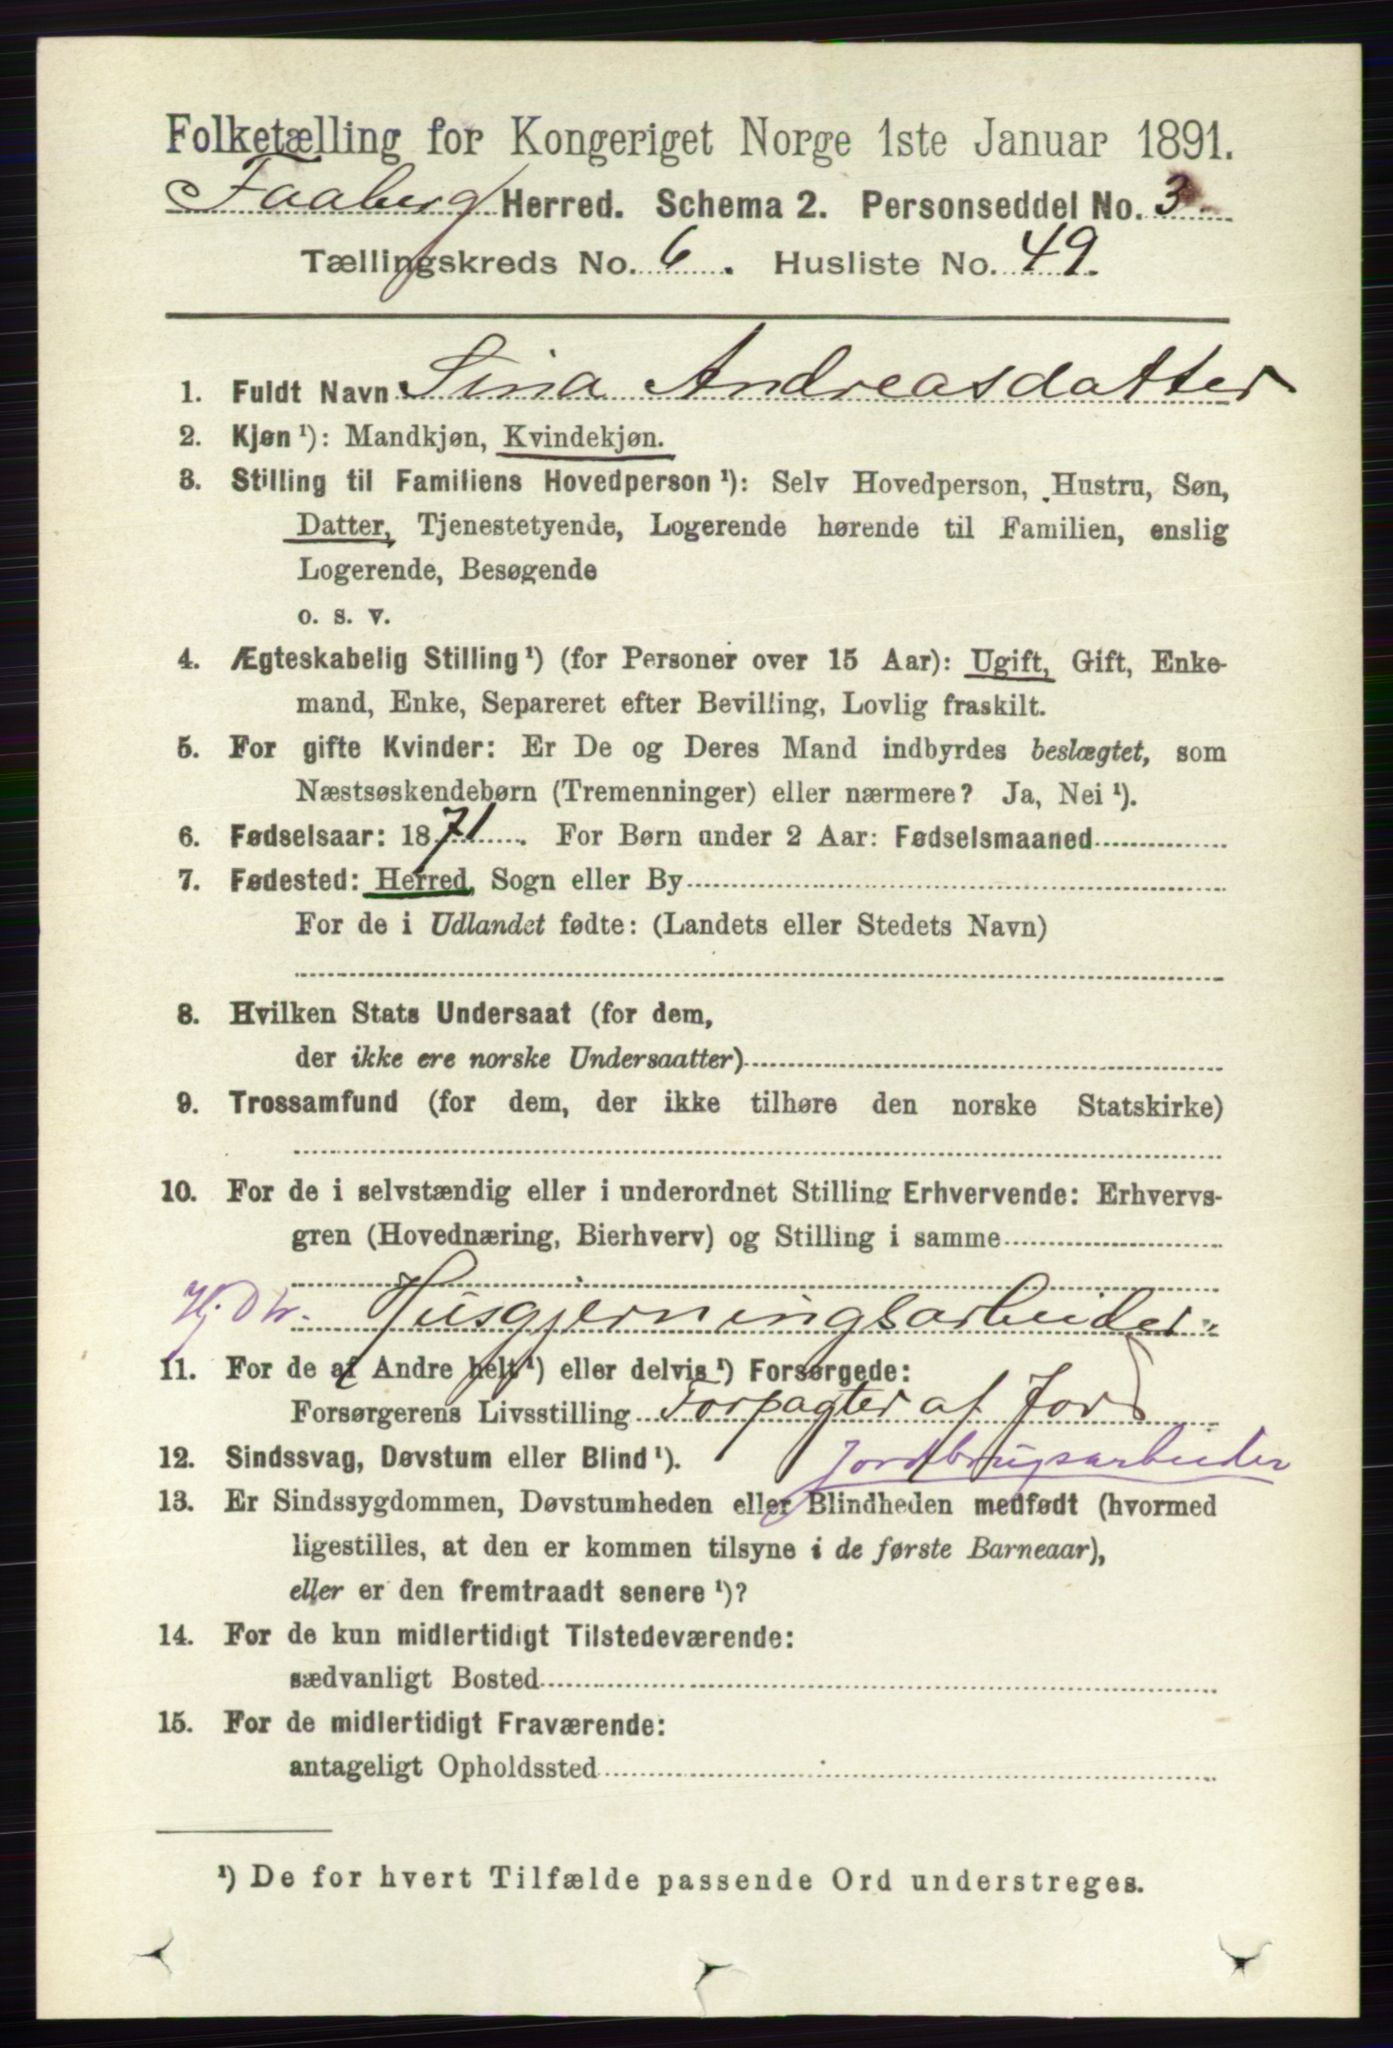 Folketælling for Kongeriget Norge 1ste Januar 1891.
Faaberg Herred. Schema 2. Personseddel No. 3
Tællingskreds No. 6. Husliste No. 49.
1. Fuldt Navn Sina Andreasdatter
2. Kjøn ¹): Mandkjøn, Kvindekjøn.
3. Stilling til Familiens Hovedperson ¹): Selv Hovedperson, Hustru, Søn,
Datter, Tjenestetyende, Logerende hørende til Familien, enslig
Logerende, Besøgende
o. s. v.
4. Ægteskabelig Stilling ¹) (for Personer over 15 Aar): Ugift, Gift, Enke-
mand, Enke, Separeret efter Bevilling, Lovlig fraskilt.
5. For gifte Kvinder: Er De og Deres Mand indbyrdes beslægtet, som
Næstsøskendebørn (Tremenninger) eller nærmere? Ja, Nei ¹).
6. Fødselsaar: 1871. For Børn under 2 Aar: Fødselsmaaned
7. Fødested: Herred, Sogn eller By
For de i Udlandet fødte: (Landets eller Stedets Navn)
8. Hvilken Stats Undersaat (for dem,
der ikke ere norske Undersaatter)
9. Trossamfund (for dem, der ikke tilhøre den norske Statskirke)
10. For de i selvstændig eller i underordnet Stilling Erhvervende: Erhvervs-
gren (Hovednæring, Bierhverv) og Stilling i samme
Hj. Dtr. Husgjerningsarbeider.
11. For de af Andre helt ¹) eller delvis ¹) Forsørgede:
Forsørgerens Livsstilling Forpagter af Jord
12. Sindssvag, Døvstum eller Blind ¹). Jordbrugsarbeider
13. Er Sindssygdommen, Døvstumheden eller Blindheden medfødt (hvormed
ligestilles, at den er kommen tilsyne i de første Barneaar),
eller er den fremtraadt senere ¹)?
14. For de kun midlertidigt Tilstedeværende:
sædvanligt Bosted
15. For de midlertidigt Fraværende:
antageligt Opholdssted
¹) De for hvert Tilfælde passende Ord understreges.